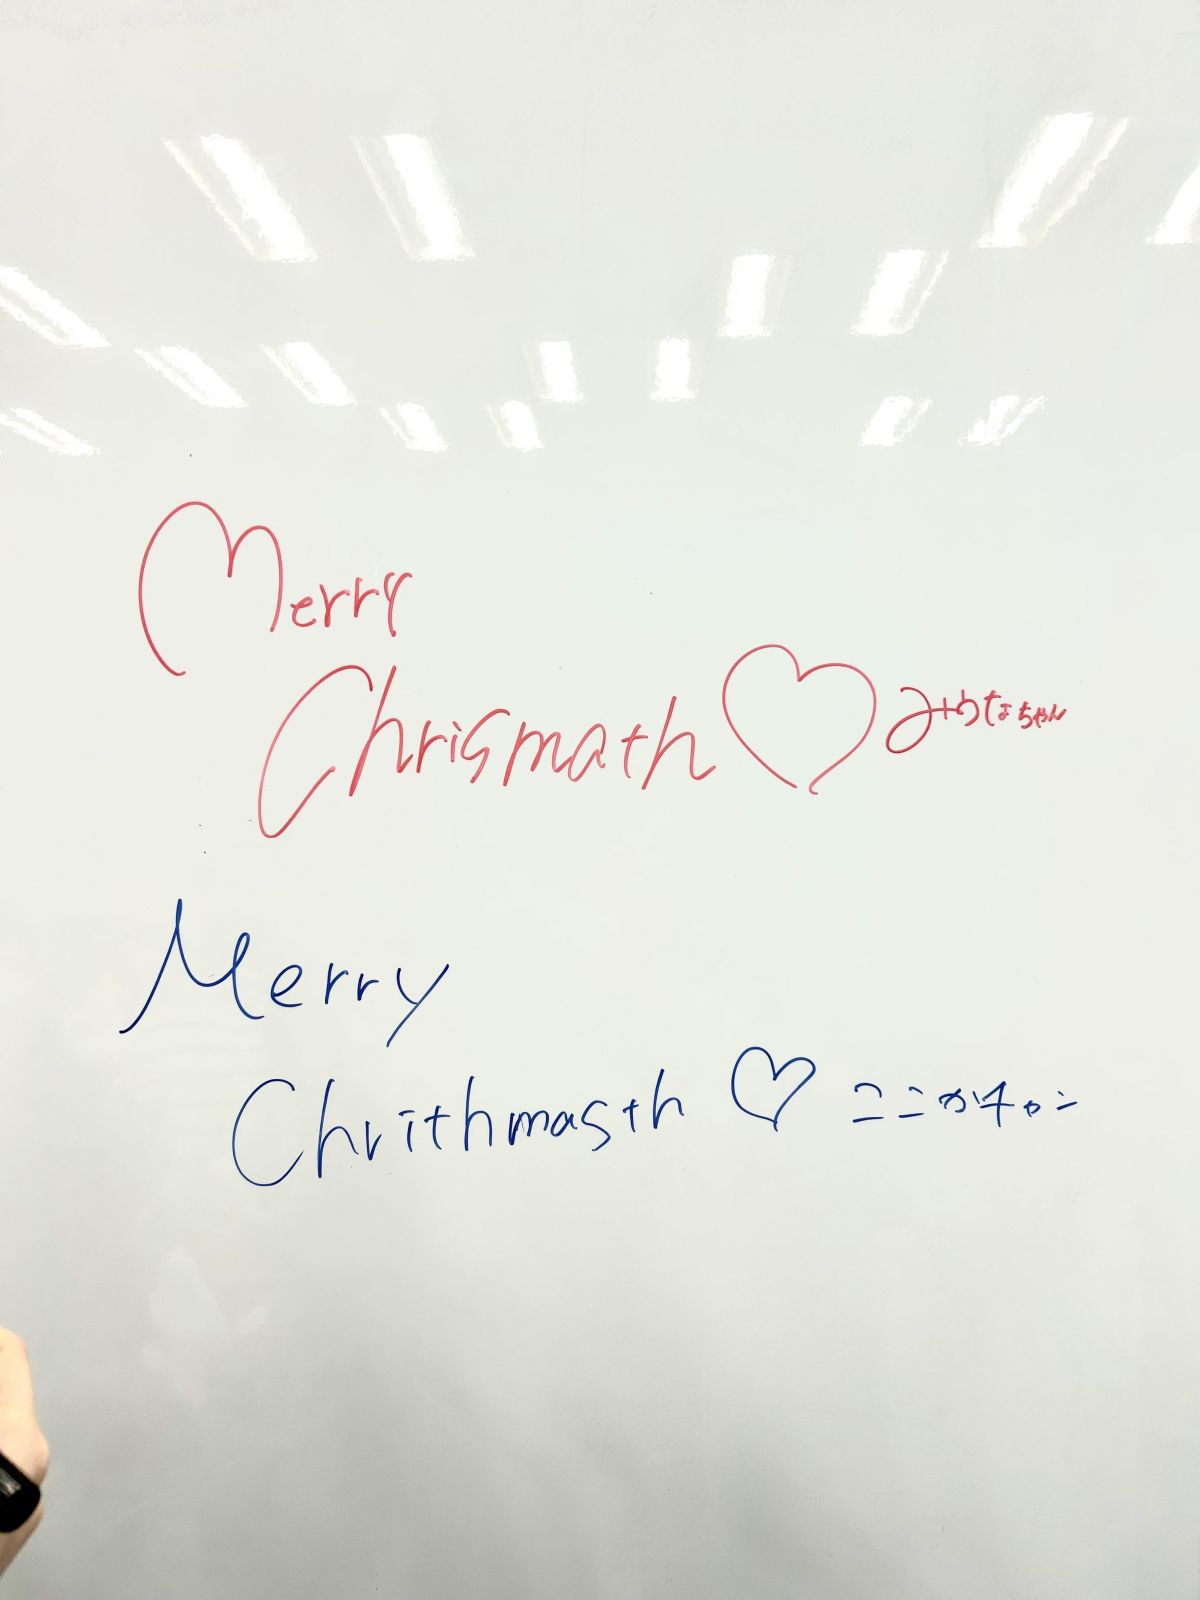 Merry
Chrismath♡ みゆなちゃん
Merry
Chrithmasth♡ ここかチャン